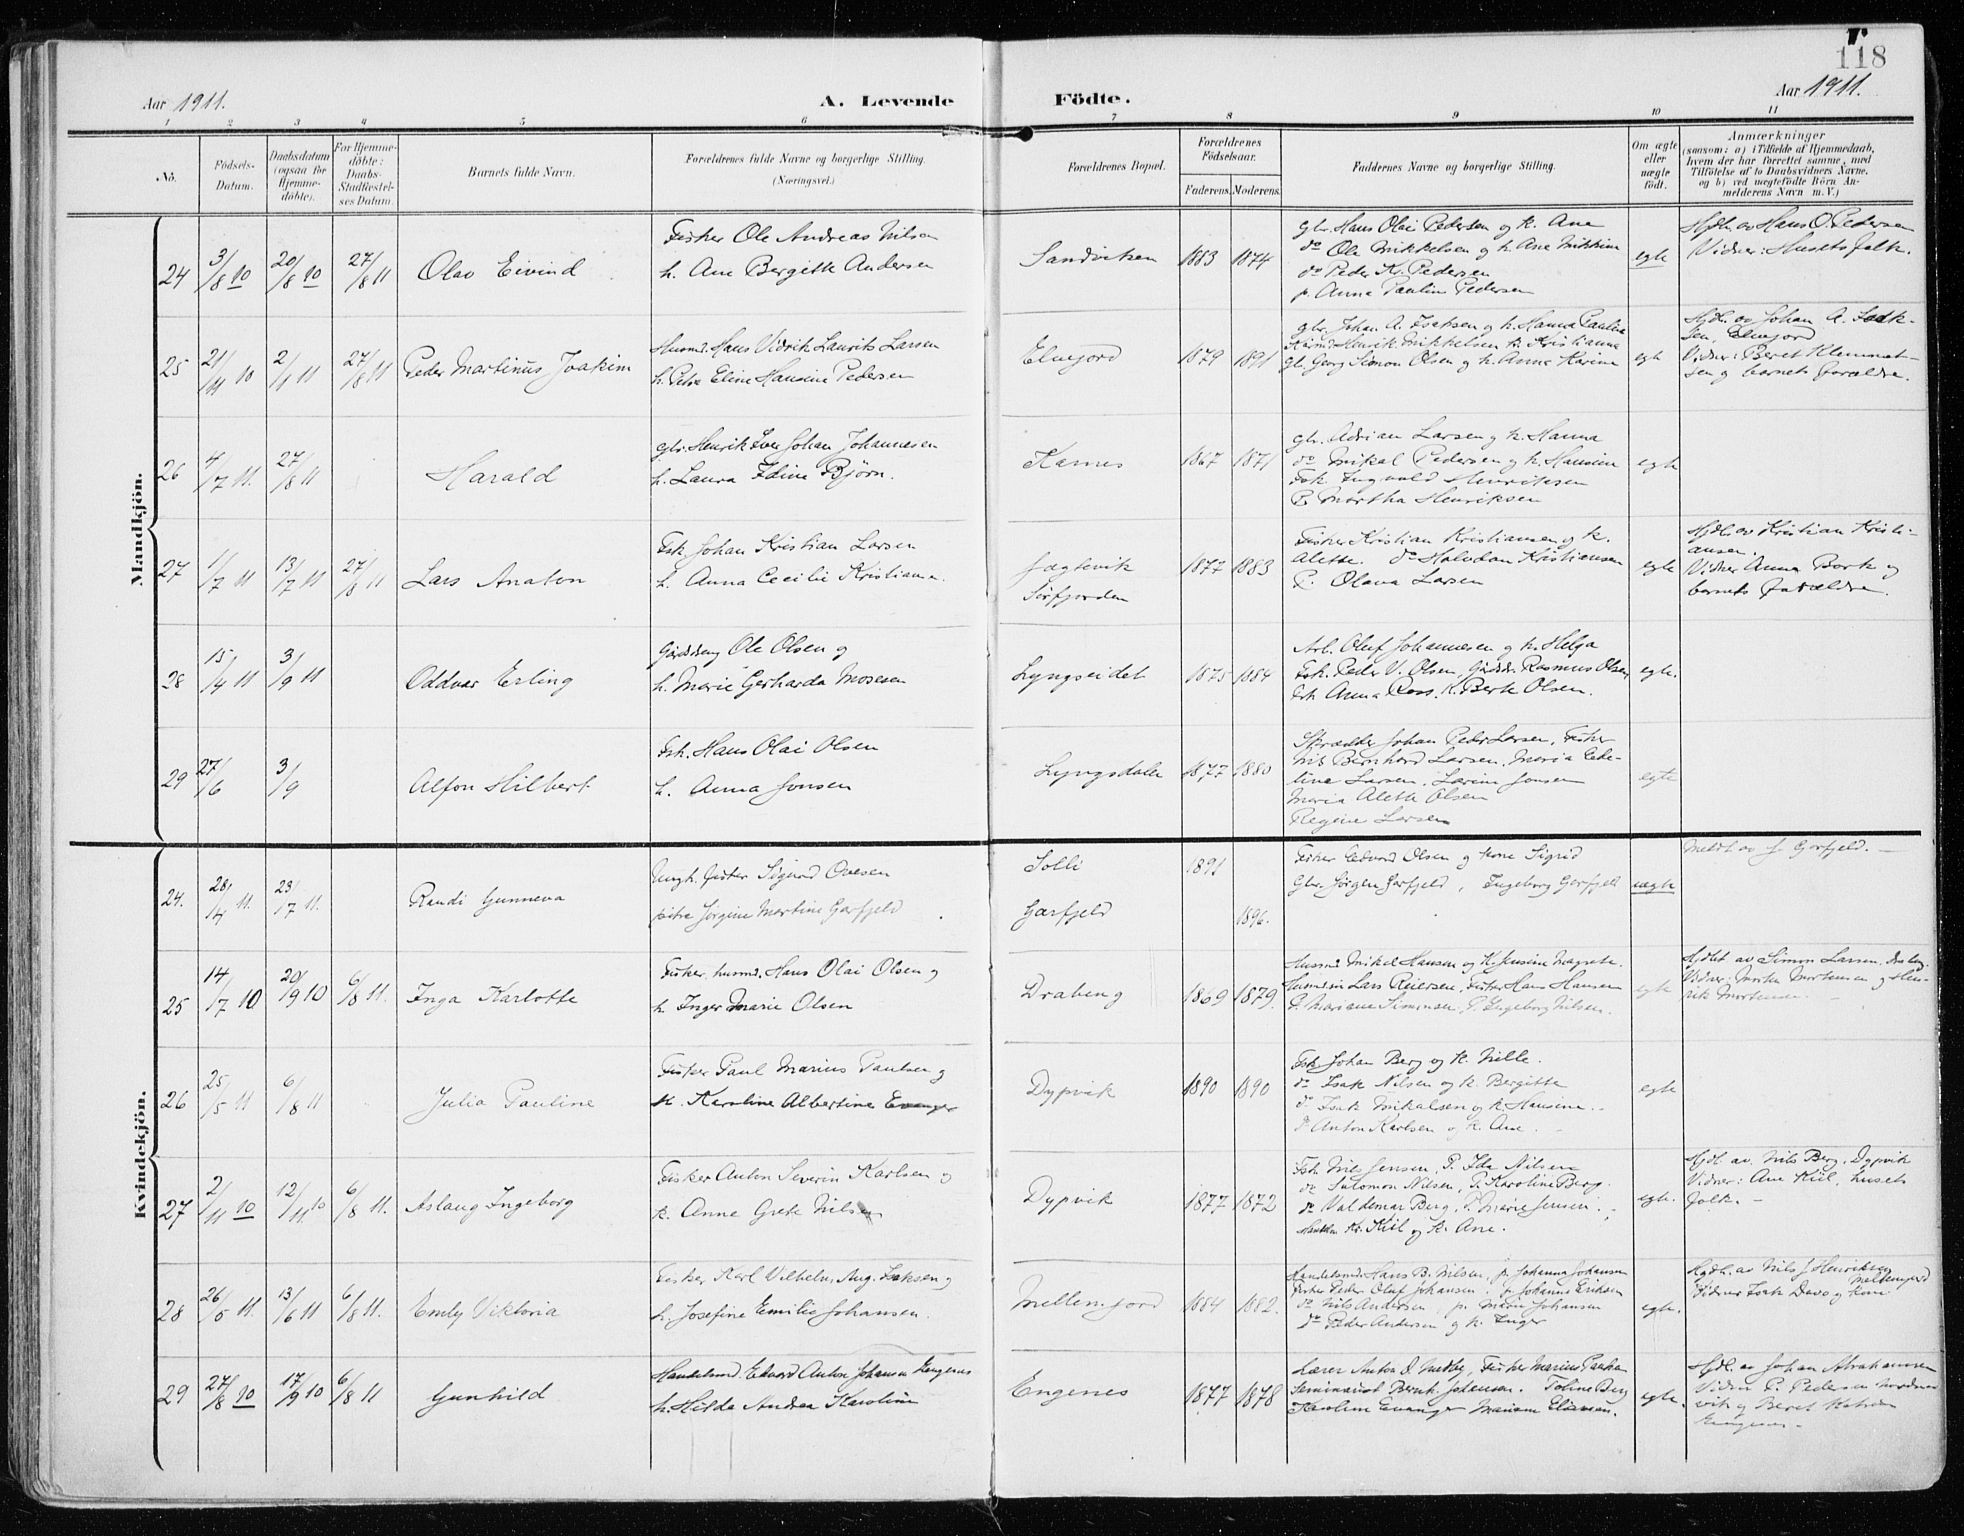 118
Aar 1911.
A. Levende
Födte.
Aar 1911.
1 2 3 4 5 6 7 8 9 10 11
No.
Födsels-
Datum.
Daabsdatum
(ogsaa for
Hjemme-
döbte).
For Hjemme-
döbte:
Daabs-
Stadfæstel-
ses Datum.
Barnets fulde Navn.
Forældrenes fulde Navne og borgerlige Stilling.
(Næringsvei.)
Forældrenes Bopæl.
Forældrenes
Födselsaar.
Faderens. Moderens.
Faddernes Navne og borgerlige Stilling.
Om ægte
eller
uægte
födt.
Anmærkninger
(saasom: a) i Tilfælde af Hjemmedaab,
hvem der har forrettet samme, med
Tilföielse af to Daabsvidners Navne.
og b) ved uægtefödte Börn An-
melderens Navn m. V.)
Mandkjön.
24 3/8 10 20/8 10 27/8 11
Olav Eivind
Fisker Ole Andreas Nilsen
h. Ane Bergitte Andersen
Sandviksen 1883 1874
gbr. Hans Olai Pedersen og k. Ane
do Ole Mikkelsen og h. Ane Mikkine
do Peder Kr. Pedersen
p. Anna Pauline Pedersen
egte
Hjdt. av Hans O. Pedersen
Vidner: Husets folk.
25 21/11 10 2/1 11 27/8 11
Peder Martinus Joakim
Husmd. Hans Vidrik Laurits Larsen
h. Petra Eline Hansine Pedersen
Elvejord 1879 1891
gbr. Johan A. Isaksen og h. Hanna Paulina
Henrik Mikkelsen h. Kristianna
gbr. Georg Simon Olsen og h. Anna Karine
egt
Hjdt. av Johan A. Isak-
sen, Elvejord
Vidner: Beret Klemmet-
sen og barnets forældre.
26 4/7 11. 27/8 11
Harald
gbr. Henrik Iver Johan Johannesen
h. Laura Edine Bjørn.
Karnes 1867 1871
gbr. Adrian Larsen og h. Hanna
do Mikal Pedersen og h. Hansine
Fsk. Ingvald Henriksen
P. Martha Henriksen
egte
27 1/7 11 13/7 11 27/8 11
Lars Anaton
Fsk. Johan Kristian Larsen
h. Anna Cecilie Kristiansen
Jægtevik
Sørfjorden
1877 1883
Fisker Kristian Kristiansen og k.
Alette. do Halvdan Kristiansen
P. Olava Larsen
egte
Hjdt. av Kristian Kristi-
ansen.
Vidner Anna Bork og
barnets forældre.
28 15/4 11 3/9 11
Oddvar Erling
Ole Olsen og
h. Marie Gerharda Mosesen
Lyngseidet 1875 1884
Arb. Oluf Johannesen og h. Helga
Fsk. Peder V. Olsen, Rasmus Olsen,
Fsk Anna Ross. K. Berte Olsen.
egte.
29 27/6 3/9
Alfon Hilbert
Fsk. Hans Olai Olsen
h. Anna Jonsen
Lyngsdalen 1877 1880
Skrædder Johan Peder Larsen, Fisker
Nils Bernhard Larsen, Maria Ede-
line Larsen, Larine Jonsen
Maria Alette Olsen
Regine Larsen
egte
Kvindekjön.
24. 28/4 11. 23/7 11.
Randi Gunneva
Ungk. fisker Sigurd Ovesen
pike Jørgine Martine Garfjeld
Solli
Garfjeld
1891
1896.
Fisker Edvard Olsen og kone Sigrid
Gbr. Jørgen Garfjeld, Ingeborg Garfjeld
uægte
Meldt av J. Garfjeld. —
25 14/7 10 20/9 10 6/8 11.
Inga Karlotte
Fisker, husmd. Hans Olai Olsen og
h. Inger Marie Olsen
Drabeng 1869 1879.
Husmd Mikal Hansen og K. Jensine Magrete.
Husmdsn Lars Reiersen, Fisker Hans Hansen
P. Mariane Simonsen, P. Ingeborg Nilsen.
egte
Hjdøbt av Simon Larsen, Drabeng.
Vidner: Morten Mortensen og Hen-
rik Mortensen. —
26 25/5 11 6/8 11
Julia Pauline
Fisker Paul Marius Paulsen og
k. Karoline Albertine Evanger
Dypvik 1890 1890
Fsk. Johan Berg og K. Nille.
do Isak Nilsen og k. Bergitte
do Isak Mikalsen og k. Hansine.
do Anton Karlsen og k. Ane. —
egte
27 2/11 10 12/11 10 6/8 11.
Aslaug Ingeborg
Fisker Anton Severin Karlsen og
k. Anne Grete Nilsen
Dypvik 1877 1872
Fsk. Nils Jensen, P. Ida Nilsen
do Salomon Nilsen, P. Karoline Berg.
do Valdemar Berg, P. Marie Jensen.
Kr. Kiil og k. Ane.
egte.
Hjdt. av Nils Berg, Dypvik
Vidner: Ane Kiil, husets
folk. —
28 26/5 11. 13/6 11 6/8 11.
Emly Viktoria
Fisker Karl Vilhelm Aug. Isaksen og
h. Josefine Emilie Johansen.
Mellemjord 1884 1882.
Handelsmd Hans B. Nilsen, p. Johanna Johansen
Fisker Peder Oluf Johansen, p. Johanne Eriksen
do Nils Andersen p. Marie Johansen
do Peder Andersen og k. Inger
egte.
Hjdt. av Nils J. Henriksen
Mellemjord
Vidner Isak Davo og kone.
29 27/8 10 17/9 10 6/8 11
Gunhild
Handelsmd. Edvard Anton Johansen Engenes
h. Hilda Andrea Karoline
Engenes 1877 1878
Lærer Anton O. Medby, Fisker Marius Paulsen
Seminarist Bernh. Johansen. Toline Berg
Karoline Evanger Mariane
egte.
Hjdt. av Johan Abrahamsen
Vidner P. Pedersen
vik og Beret
Engenes —